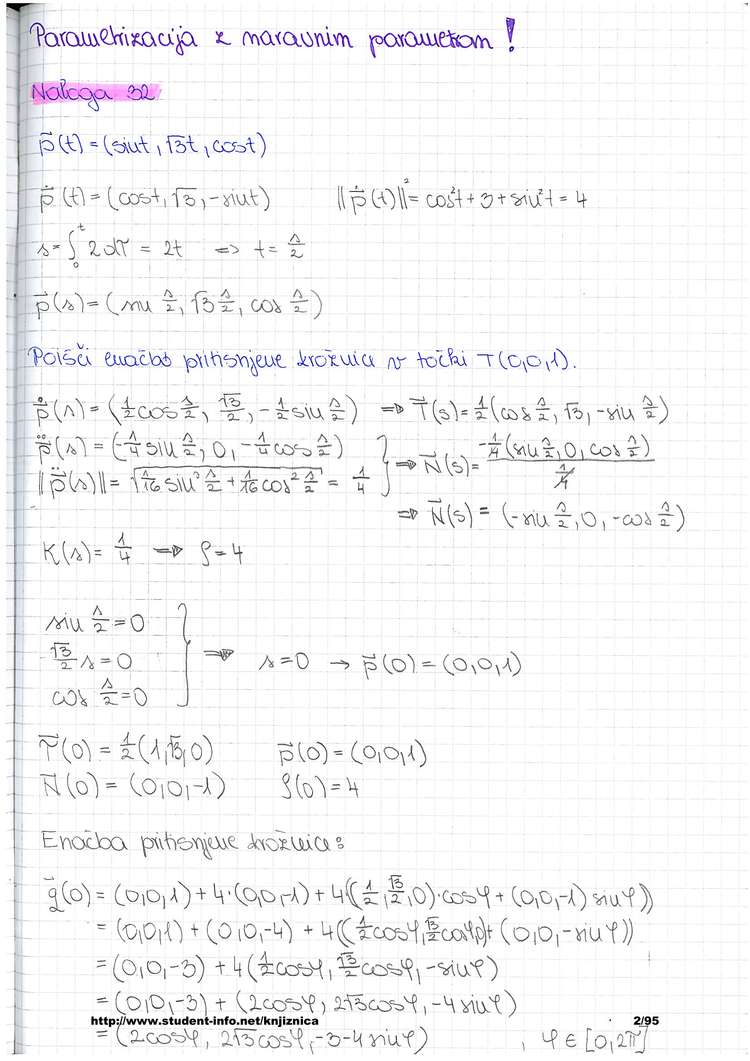 Parametrizacija z naravnim parametrom!
Naloga 32
p⃗(t) = (sin t, √3t, cos t)
p⃗̇(t) = (cos t, √3, -sin t)    ||p⃗̇(t)||² = cos²t + 3 + sin²t = 4
s = ∫₀ᵗ 2dτ = 2t ⇒ t = s/2
p⃗(s) = (sin s/2, √3 s/2, cos s/2)
Poišči enačbo pritisnjene krožnice v točki T(0,0,1).
p⃗̇(s) = (1/2 cos s/2, √3/2, -1/2 sin s/2) ⇒ T⃗(s) = 1/2 (cos s/2, √3, -sin s/2)
p⃗̈(s) = (-1/4 sin s/2, 0, -1/4 cos s/2)
||p⃗̈(s)|| = √(1/16 sin² s/2 + 1/16 cos² s/2) = 1/4 } ⇒ N⃗(s) = -1/4 (sin s/2, 0, cos s/2) / 1/4
⇒ N⃗(s) = (-sin s/2, 0, -cos s/2)
K(s) = 1/4 ⇒ ρ = 4
sin s/2 = 0
√3/2 s = 0 } ⇒ s = 0 → p⃗(0) = (0,0,1)
cos s/2 = 0
T⃗(0) = 1/2 (1, √3, 0)    p⃗(0) = (0,0,1)
N⃗(0) = (0,0,-1)    ρ(0) = 4
Enačba pritisnjene krožnice:
q⃗(0) = (0,0,1) + 4·(0,0,-1) + 4·((1/2, √3/2, 0)·cos φ + (0,0,-1) sin φ))
= (0,0,1) + (0,0,-4) + 4((1/2 cos φ, √3/2 cos φ, 0) + (0,0,-sin φ))
= (0,0,-3) + 4(1/2 cos φ, √3/2 cos φ, -sin φ)
= (0,0,-3) + (2cos φ, 2√3 cos φ, -4 sin φ)
http://www.student-info.net/knjiznica    2/95
= (2cos φ, 2√3 cos φ, -3-4 sin φ)    , φ ∈ [0, 2π]